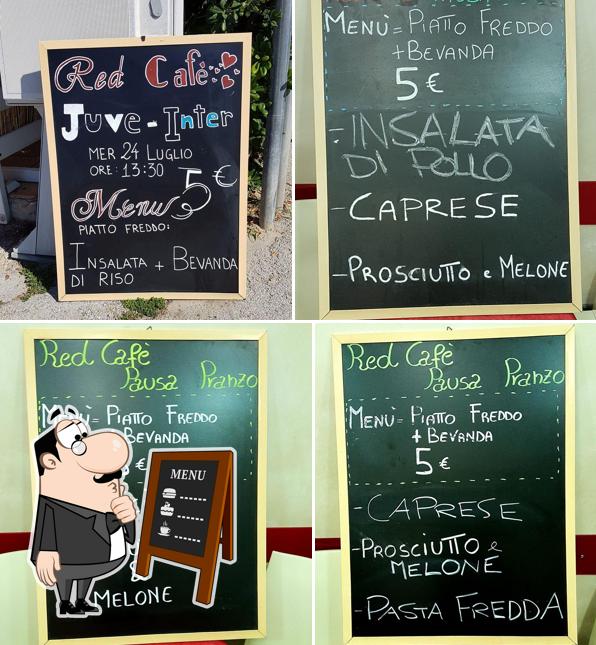 Red Cafè
Juve - Inter
MER 24 LUGLIO
ORE: 13:30
Menu 5 €
PIATTO FREDDO:
INSALATA + BEVANDA
DI RISO
MENÙ = PIATTO FREDDO
+ BEVANDA
5 €
- INSALATA
DI POLLO
- CAPRESE
- PROSCIUTTO e MELONE
Red Cafè
Pausa Pranzo
MENÙ = PIATTO FREDDO
BEVANDA
€
MENU
MELONE
Red Cafè
Pausa Pranzo
MENÙ = PIATTO FREDDO
+ BEVANDA
5 €
- CAPRESE
- PROSCIUTTO e
MELONE
- PASTA FREDDA